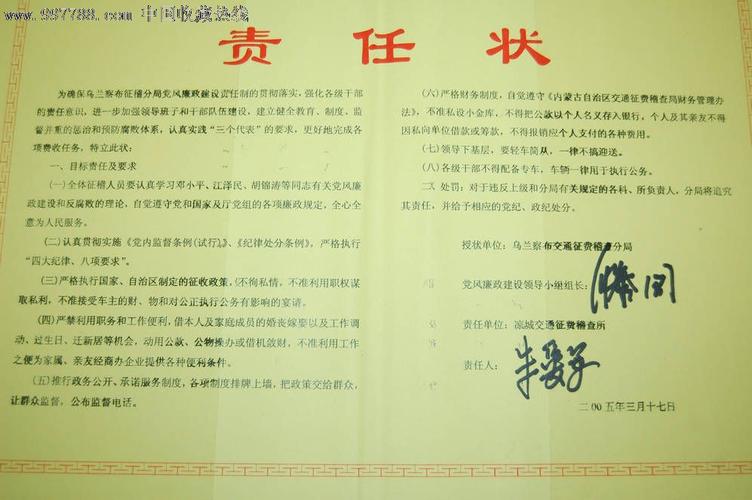 www.997788.com 中国收藏热线
责任状
为确保乌兰察布征稽分局党风廉政建设责任制的贯彻落实，强化各级干部
的责任意识，进一步加强领导班子和干部队伍建设，建立健全教育、制度、监
督并重的惩治和预防腐败体系，认真实践“三个代表”的要求，更好地完成各
项费收任务，特立此状：
一、目标责任及要求
（一）全体征稽人员要认真学习邓小平、江泽民、胡锦涛等同志有关党风廉
政建设和反腐败的理论，自觉遵守党和国家及厅党组的各项廉政规定，全心全
意为人民服务。
（二）认真贯彻实施《党内监督条例(试行)》、《纪律处分条例》，严格执行
“四大纪律、八项要求”。
（三）严格执行国家、自治区制定的征收政策，不徇私情，不准利用职权谋
取私利，不准接受车主的财、物和对公正执行公务有影响的宴请。
（四）严禁利用职务和工作便利，借本人及家庭成员的婚丧嫁娶以及工作调
动、过生日、迁新居等机会，动用公款、公物操办或借机敛财，不准利用工作
之便为家属、亲友经商办企业提供各种便利条件。
（五）推行政务公开、承诺服务制度，各项制度排牌上墙，把政策交给群众，
让群众监督，公布监督电话。
（六）严格财务制度，自觉遵守《内蒙古自治区交通征费稽查局财务管理办
法》，不准私设小金库，不得把公款以个人名义存入银行，个人及其亲友不得
因私向单位借款或筹款，不得报销应个人支付的各种费用。
（七）领导下基层，要轻车简从，一律不搞迎送。
（八）各级干部不得配备专车，车辆一律用于执行公务。
二、处罚：对于违反上级和分局有关规定的各科、所负责人，分局将追究
其责任，并给予相应的党纪、政纪处分。
授状单位：乌兰察布交通征费稽查分局
党风廉政建设领导小组组长：
责任单位：凉城交通征费稽查所
责任人：
二00五年三月十七日